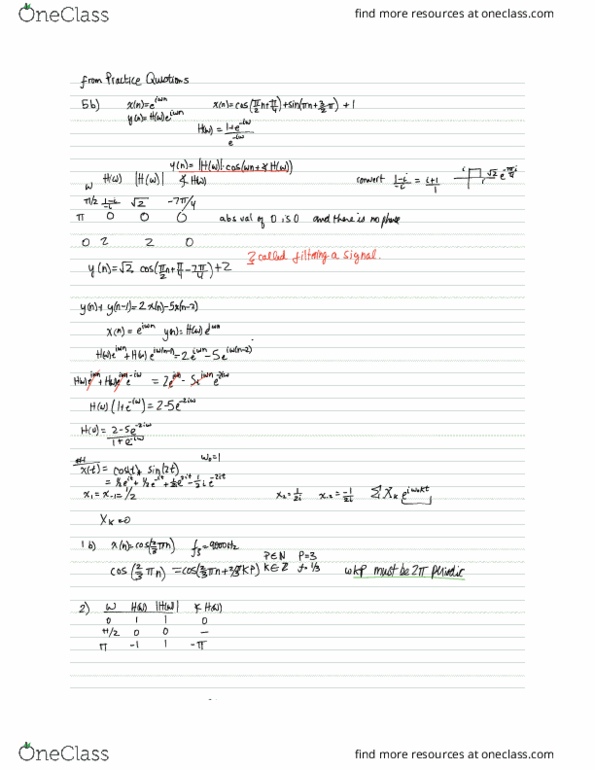 OneClass
find more resources at oneclass.com
from Practice Questions
5b) x(n)=e^{iωn} x(n)=cos(π/2 n+π/4)+sin(πn+3/2 π)+1
y(n)=H(ω)e^{iωn}
H(ω)=(1+e^{-iω})/e^{-iω}
y(n)=|H(ω)|·cos(ωn+∡H(ω))
ω H(ω) |H(ω)| ∡H(ω) convert (1-i)/-i = (i+1)/1 √2 e^{π/4 i}
π/2 (1-i)/-i √2 -7π/4
π 0 0 0 abs val of 0 is 0 and there is no phase
0 2 2 0
called filtering a signal.
y(n)=√2 cos(π/2 n+π/4-7π/4)+2
y(n)+y(n-1)=2x(n)-5x(n-2)
x(n)=e^{iωn} y(n)=H(ω)e^{iωn}
H(ω)e^{iωn}+H(ω)e^{iω(n-1)}=2e^{iωn}-5e^{iω(n-2)}
H(ω)e^{iωn}+H(ω)e^{iωn}e^{-iω}=2e^{iωn}-5e^{iωn}e^{-2iω}
H(ω)(1+e^{-iω})=2-5e^{-2iω}
H(ω)=(2-5e^{-2iω})/(1+e^{-iω})
x(t)=cos(t)+sin(2t) ω₀=1
=½e^{it}+½e^{-it}+½ie^{2it}-½ie^{-2it}
x₁=x₋₁=1/2 x₂=1/2i x₋₂=-1/2i ΣX_k e^{iω₀kt}
X_k=0
1b) x(n)=cos(2/3 πn) f_s=9000Hz
cos(2/3 πn)=cos(2/3 πn+2/3 πKP) P∈N K∈Z P=3 f=1/3 ωkP must be 2π periodic
2) ω H(ω) |H(ω)| ∡H(ω)
0 1 1 0
π/2 0 0 —
π -1 1 -π
OneClass
find more resources at oneclass.com